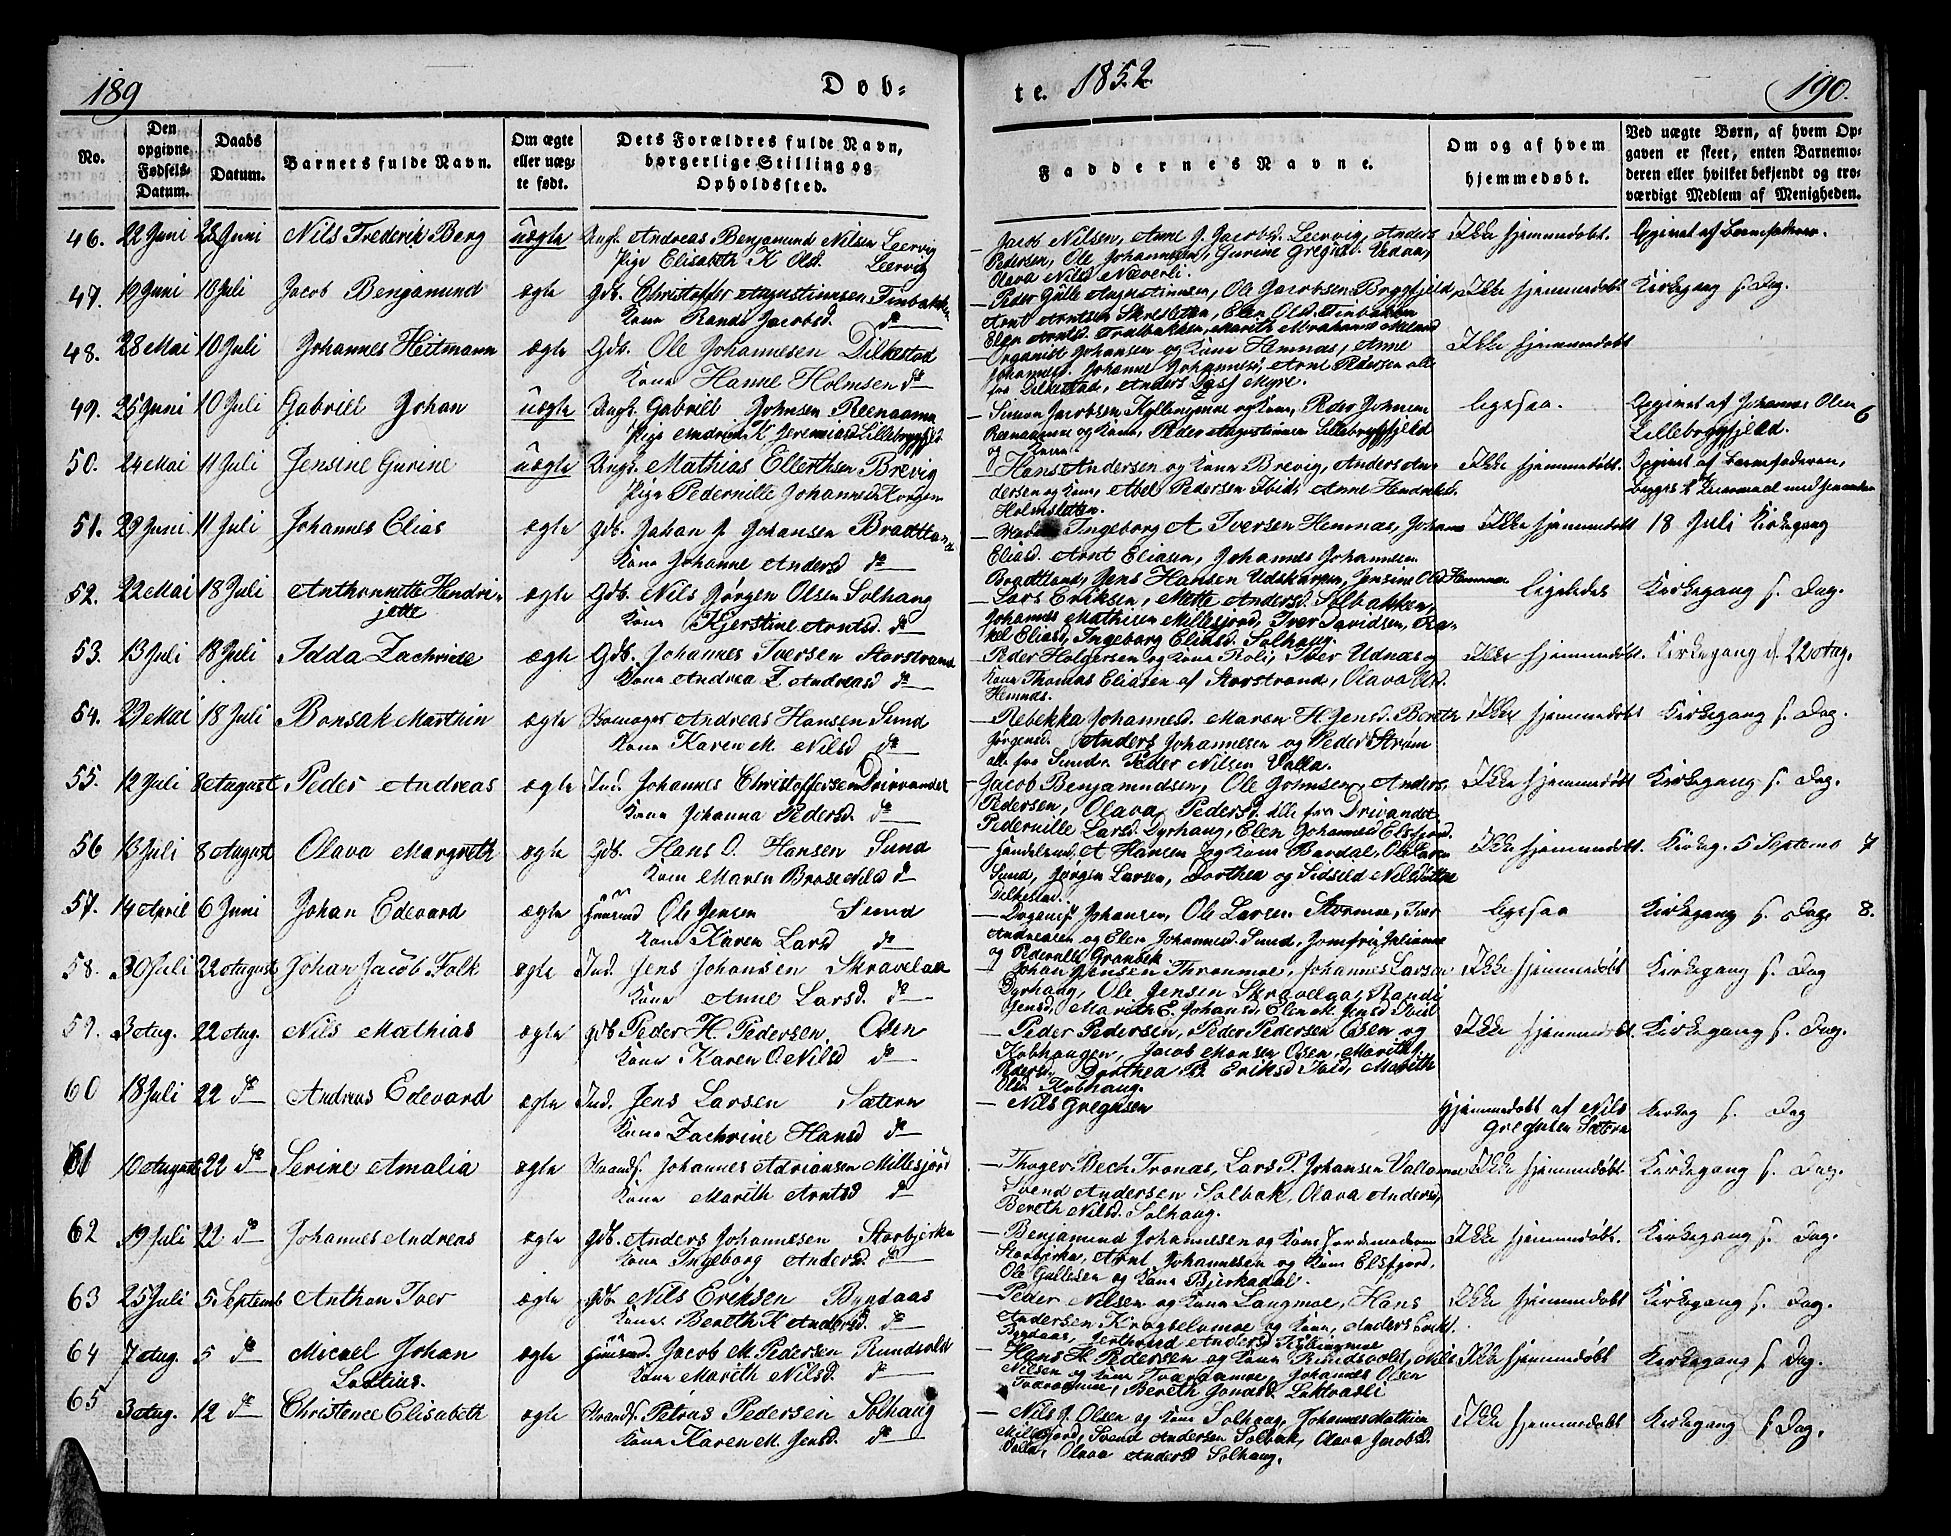 189
Døb-
te. 1852
190.
No.
Den opgivne Fødsels-Datum.
Daabs Datum.
Barnets fulde Navn.
Om ægte eller uæg-te født.
Dets Forældres fulde Navn, borgerlige Stilling og Opholdssted.
Faddernes Navne.
Om og af hvem hjemmedøbt.
Ved uægte Børn, af hvem Op-gaven er skeet, enten Barnemo-deren eller hvilket bekjendt og tro-værdigt Medlem af Menigheden.
46. 22 Juni 28 Juni Nils Frederik Berg uægte Ungk. Andreas Benjamund Nilsen Leervig
Pige Elisabeth K Olsd. Leervig
Jacob Nilsen, Anne J. Jacobsd. Leervig, Anders
Pedersen, Ole Johannesen, Gurine Gregusd. Vedaa,
Olava Nilsd Næverli.
Ikke hjemmedøbt. Opgivet af Barnefaderen.
47. 19 Juni 10 Juli Jacob Benjamund ægte Gdb. Christoffer Augustinusen Finbakken
Kone Randi Jacobsd. do
Peder Gulle Augustinusen, Ole Jacobsen Bryggfjeld,
Arnt Arntsen Skresletten, Elen Olsd. Finbakken
Elen Arntsd. Fralbakken, Marith Abrahamsd
Ikke hjemmedøbt Kirkegang s. Dag.
48. 28 Mai 10 Juli Johannes Heitmann ægte Gdb. Ole Johannesen Dilkestad
Kone Hanne Holmsen do
Organist Johansen og Kone Hemnæs, Anne
Johannesd. Johanne Johannesd, Arnt Pedersen alle
fra Dilkestad, Anders Dass Myre.
Ikke hjemmedøbt
49. 25 Juni 10 Juli Gabriel Johan uægte Ungk. Gabriel Johnsen Reenaamo
Pige Andrine K. Jeremiasd Lillebryggfjeld
Simon Jacobsen Kyllingmoe og Kone, Peder Johnsen
Reenaamoe og Kone, Peder Augustinusen Lillebryggfjeld
og Kone.
ligesaa. Opgivet af Johannes Olsen 6
Lillebryggfjeld.
50. 24 Mai 11 Juli Jensine Gurine uægte Ungk. Mathias Ellertsen Brevig
Pige Pedernille Johannesd Korgen
Hans Andersen og Kone Brevig, Anders An-
dersen og Kone, Abel Pedersen Ibid, Anne Hendriksd.
Holmsletten.
Ikke hjemmedøbt. Opgivet af Barnefaderen,
51. 29 Juni 11 Juli Johannes Elias ægte Gdb. Johan J. Johansen Bradtland
Kone Johanne Andersd do
Ingeborg A Iversen Hemnæs, Johanne
Eliasd. Arnt Eliasen, Johannes Johannesen
Bradtland, Jens Hansen Udskarpen, Jensine Olsd Hemnæs
Ikke hjemmedøbt 18 Juli Kirkegang
52. 22 Mai 18 Juli Anthonnette Hendri-
jette ægte Gdb. Nils Jørgen Olsen Solhaug
Kone Kjerstine Arntsd. do
Lars Eriksen, Mette Andersd. Solbakken,
Johannes Mathisen Millesjord, Iver Davidsen, Ra-
kel Eliasd, Ingeborg Eliasd. Solhaug.
ligeledes Kirkegang s. Dag.
53. 13 Juli 18 Juli Idda Zachrine ægte Gdb. Johannes Iversen Storstrand
Kone Andrea Z. Andreasd do
Peder Holgersen og Kone Roli, Iver Udnæs og
Kone Thomas Eliasen af Storstrand, Olava Olsd.
Hemnæs.
Ikke hjemmedøbt. Kirkegang d. 22 Aug.
54. 29 Mai 18 Juli Bonsak Marthin ægte Skomager Andreas Hansen Sund
Kone Karen M. Nilsd do
Rebekka Johannesd. Maren H. Jensd. Bereth
Jørgensd. Anders Johannesen og Peder Strøm
alle fra Sund. Peder Nilsen Valla.
Ikke hjemmedøbt Kirkegang s. Dag.
55. 12 Juli 8 August Peder Andreas ægte Ind. Johannes Christoffersen Drivvandet
Kone Johanna Pedersd. do
Jacob Benjamundsen, Ole Johnsen, Anders
Pedersen, Olava Pedersd. alle fra Drivandet,
Pedernille Larsd. Dyrhaug, Elen Johannesd Elsfjord.
Ikke hjemmedøbt Kirkegang s. Dag.
56 13 Juli 8 August Olava Margreth ægte Gdb. Hans O. Hansen Sund
Kone Maren Brose Nilsd do
Handelsmd, A Hansen og Kone Bardal, Ole Larsen
Sund, Jørgen Larsen, Dorthea og Sidseld Nilsdøttre
Dilkestad.
Ikke hjemmedøbt. Kirkeg. 5 Septemb 7
57. 14 April 6 Juni Johan Edevard ægte Huusmd Ole Jensen Sund
Kone Karen Larsd do
Organist Johansen, Ole Larsen Stormoe, Iver
Andreasen og Elen Johannesd. Sund, Jomfru Juliane
og Pedernille Granbek
ligesaa Kirkegang s. Dag. 8.
58. 30 Juli 22 August Johan Jacob Falk ægte Ind. Jens Johansen Skravelaa
Kone Anne Larsd. do
Johan Jensen Thronmoe, Johannes Larsen
Dyrhaug, Ole Jensen Skravelaa, Randi
Jensd, Marith E. Johansd, Elen M. Jensd Ibid
Ikke hjemmedøbt Kirkegang s. Dag
59. 3 Aug. 22 Aug. Nils Mathias ægte Gdb Peder H. Pedersen, Osen
Kone Karen O. Nilsd do
Peder Pedersen, Peder Pedersen Osen og
Kobhaugen, Jacob Monsen Osen, Marith J.
Pedersd, Dorthea B. Eriksd Ibid, Marith
Olsd. Kobhaug.
Ikke hjemmedøbt. Kirkegang s. Dag.
60 18 Juli 22 do Andreas Edevard ægte Ind. Jens Larsen Sætern
Kone Zachrine Hansd do
Nils Gregusen
Hjemmedøbt af Nils
Gregusen Sætern
Kirkeg s. Dag
61 10 August 22 do Serine Amalia ægte Strands. Johannes Adriansen Millesjord
Kone Marith Arntsd do
Thoger Bech Tronæs, Lars P. Johansen Vallamo
Svend Andersen Solbak, Olava Andersd,
Bereth Nilsd. Solhaug.
Ikke hjemmedøbt. Kirkegang s. Dag.
62 19 Juli 22 do Johannes Andreas ægte Gdb. Anders Johannesen Storbjerka
Kone Ingeborg Andersd. do
Benjamund Johannesen og Kone Jordemoderen
Storbjerka, Arnt Johannesen og Kone Elsfjord,
Ole Gullesen og Kone Bjerkadal.
Ikke hjemmedøbt. Kirkegang s. Dag.
63 25 Juli 5 Septemb Anthon Iver ægte Gdb Nils Eriksen Bygdaas
Kone Bereth K Andersd. do
Peder Nilsen og Kone Langmoe, Hans
Andersen Krogbelvmoe og Kone, Anders Eriks.
Bygdaas, Jertrud Andersd Kyllingmoe
Ikke hjemmedøbt Kirkegang s. Dag.
64 7 Aug. 5 do Micael Johan
Loctius. ægte Huusmd. Jacob M. Pedersen Rundvold
Kone Marith Nilsd. do
Hans H. Pedersen og Kone Rundvold, Nils
Nilsen og Kone Tvaraamoe, Johannes Olsen
Tvaraamoe, Bereth Jonasd. Luktvasli
Ikke hjemmedøbt Kirkegang s. Dag.
65 3 Aug. 12 do Christence Elisabeth ægte Strands. Petrus Pedersen Solhaug
Kone Karen M. Jensd. do
Nils J. Olsen og Kone Solhaug, Johannes Mathisen
Millesjord, Svend Andersen Solbak, Olava Jacobsd.
Valla, Olava Andersd Solhaug.
Ikke hjemmedøbt Kirkegang s. Dag.